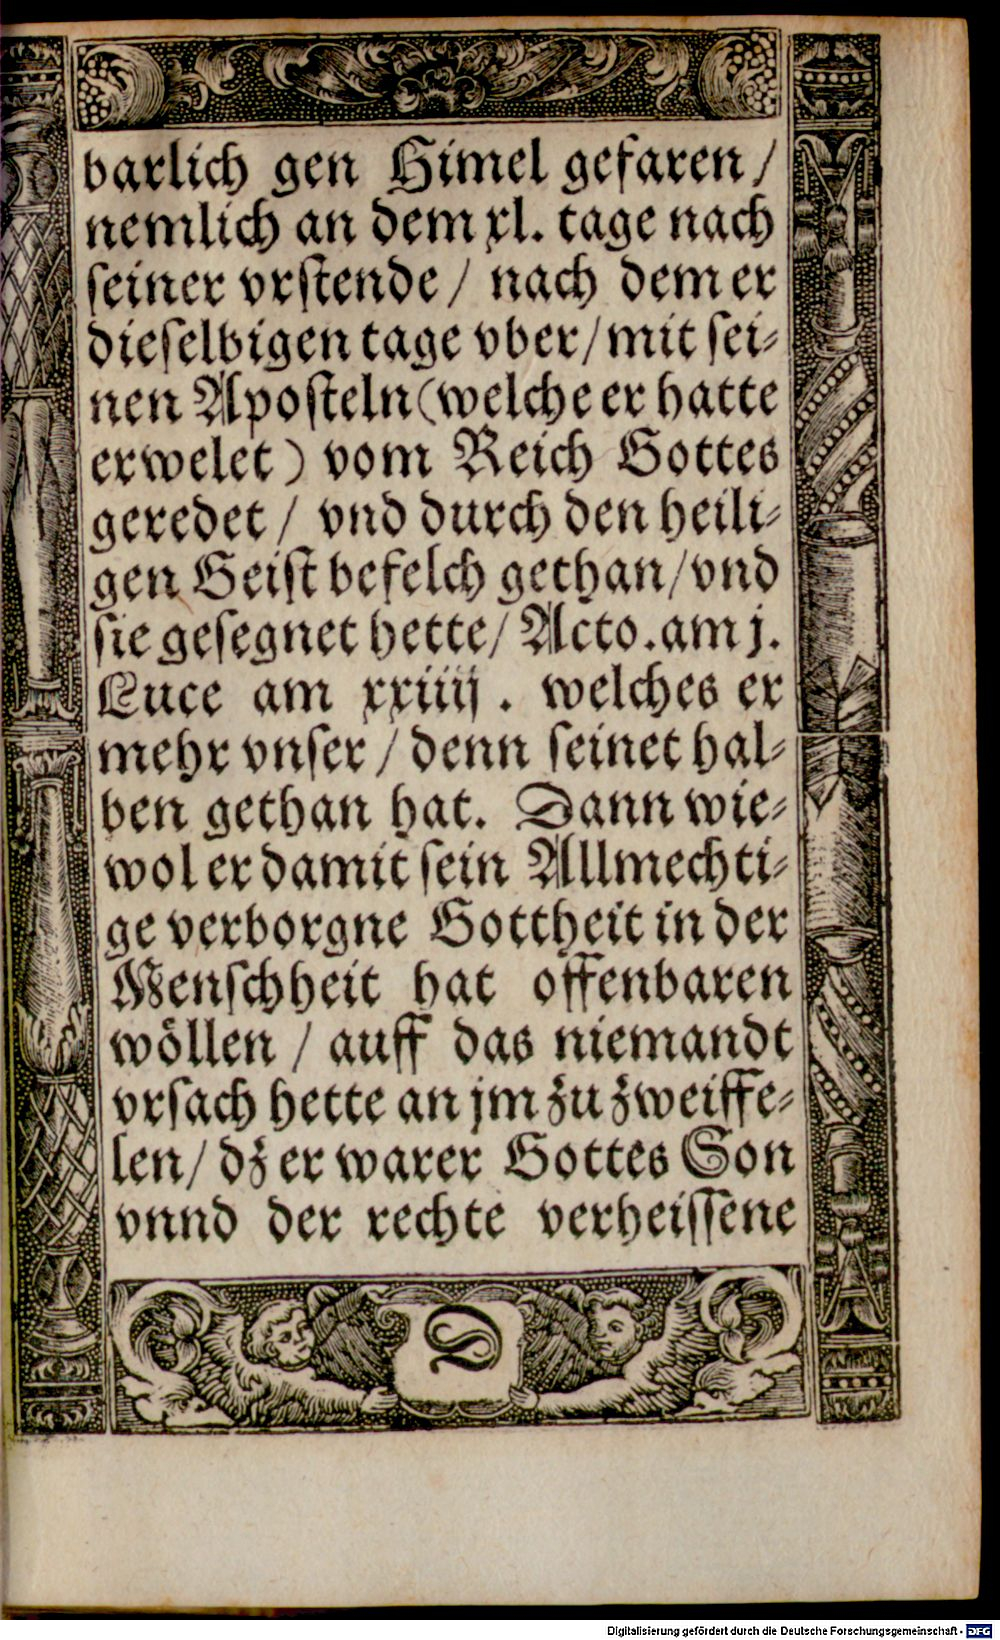 barlich gen Himel gefaren /
nemlich an dem xl. tage nach
seiner vrstende / nach dem er
dieselbigen tage vber / mit sei⸗
nen Aposteln (welche er hatte
erwelet) vom Reich Gottes
geredet / vnd durch den heili⸗
gen Geist befelch gethan / vnd
sie gesegnet hette / Acto. am j.
Luce am xxiiij. welches er
mehr vnser / denn seinet hal⸗
ben gethan hat. Dann wie⸗
wol er damit sein Allmechti⸗
ge verborgne Gottheit in der
Menschheit hat offenbaren
wöllen / auff das niemandt
vrsach hette an jm zu zweiffe⸗
len / dz er warer Gottes Son
vnnd der rechte verheissene
D
Digitalisierung gefördert durch die Deutsche Forschungsgemeinschaft - DFG